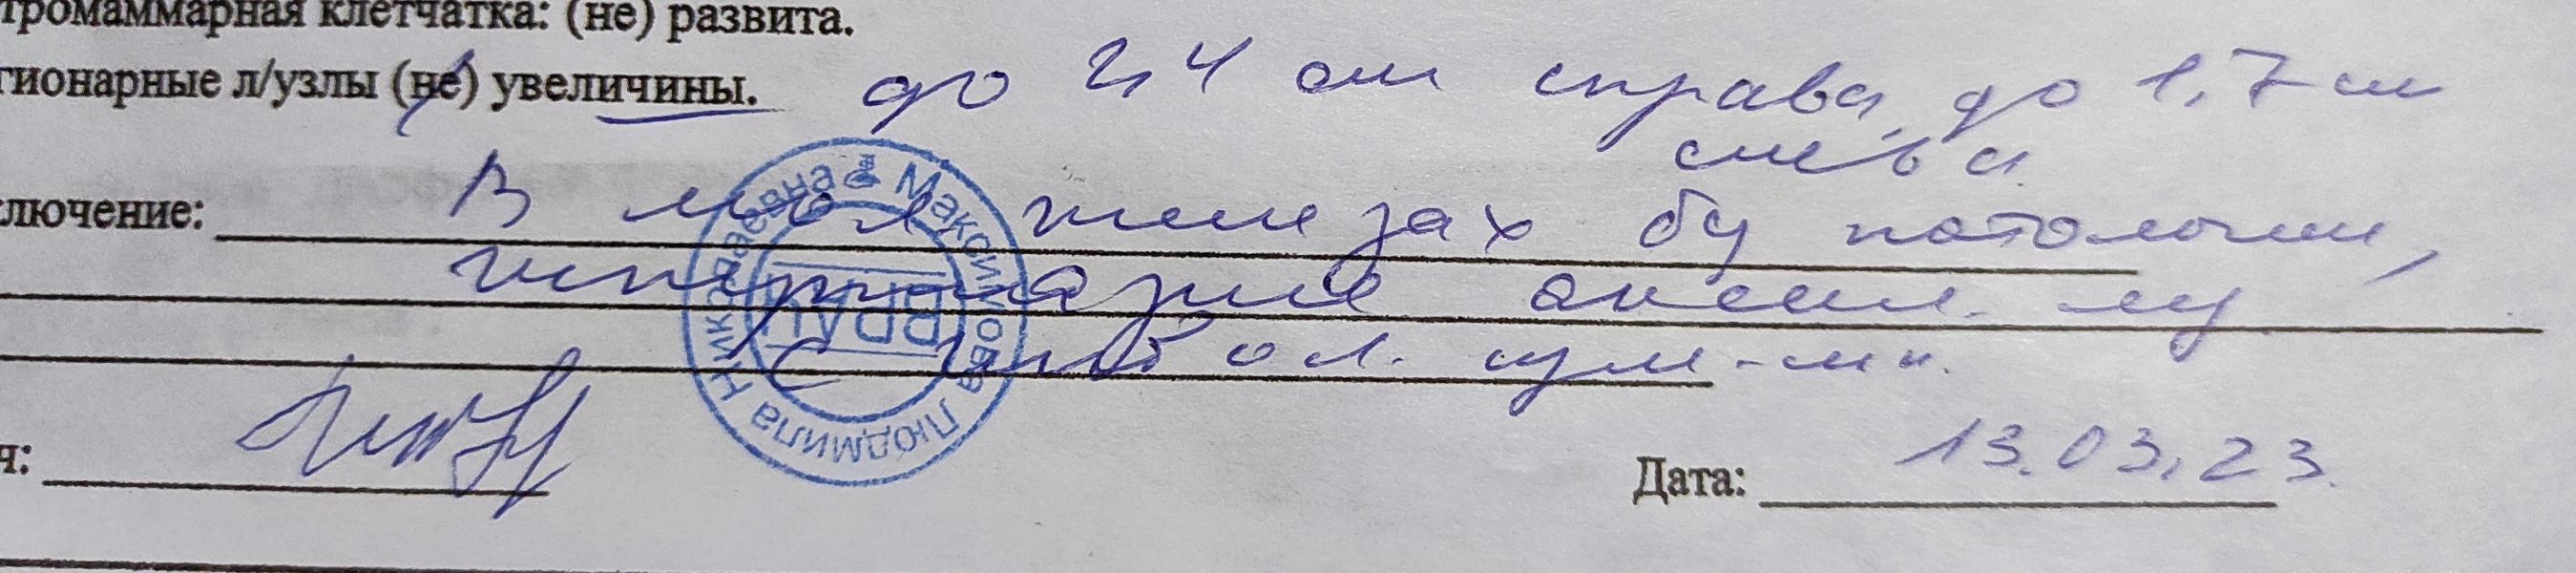 тромаммарная клетчатка: (не) развита.
гионарные л/узлы (не) увеличины. до 2,4 см справа, до 1,7 см
слева
ключение: В мол железах бу патологии,
гиперплазия аксил. лу
с
Дата: 13.03.23.
Максимова Людмила Николаевна
ВРАЧ